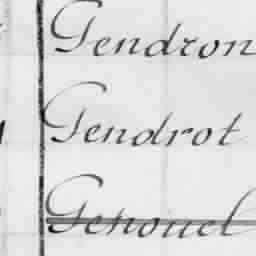 Gendron
Gendrot
Genouel